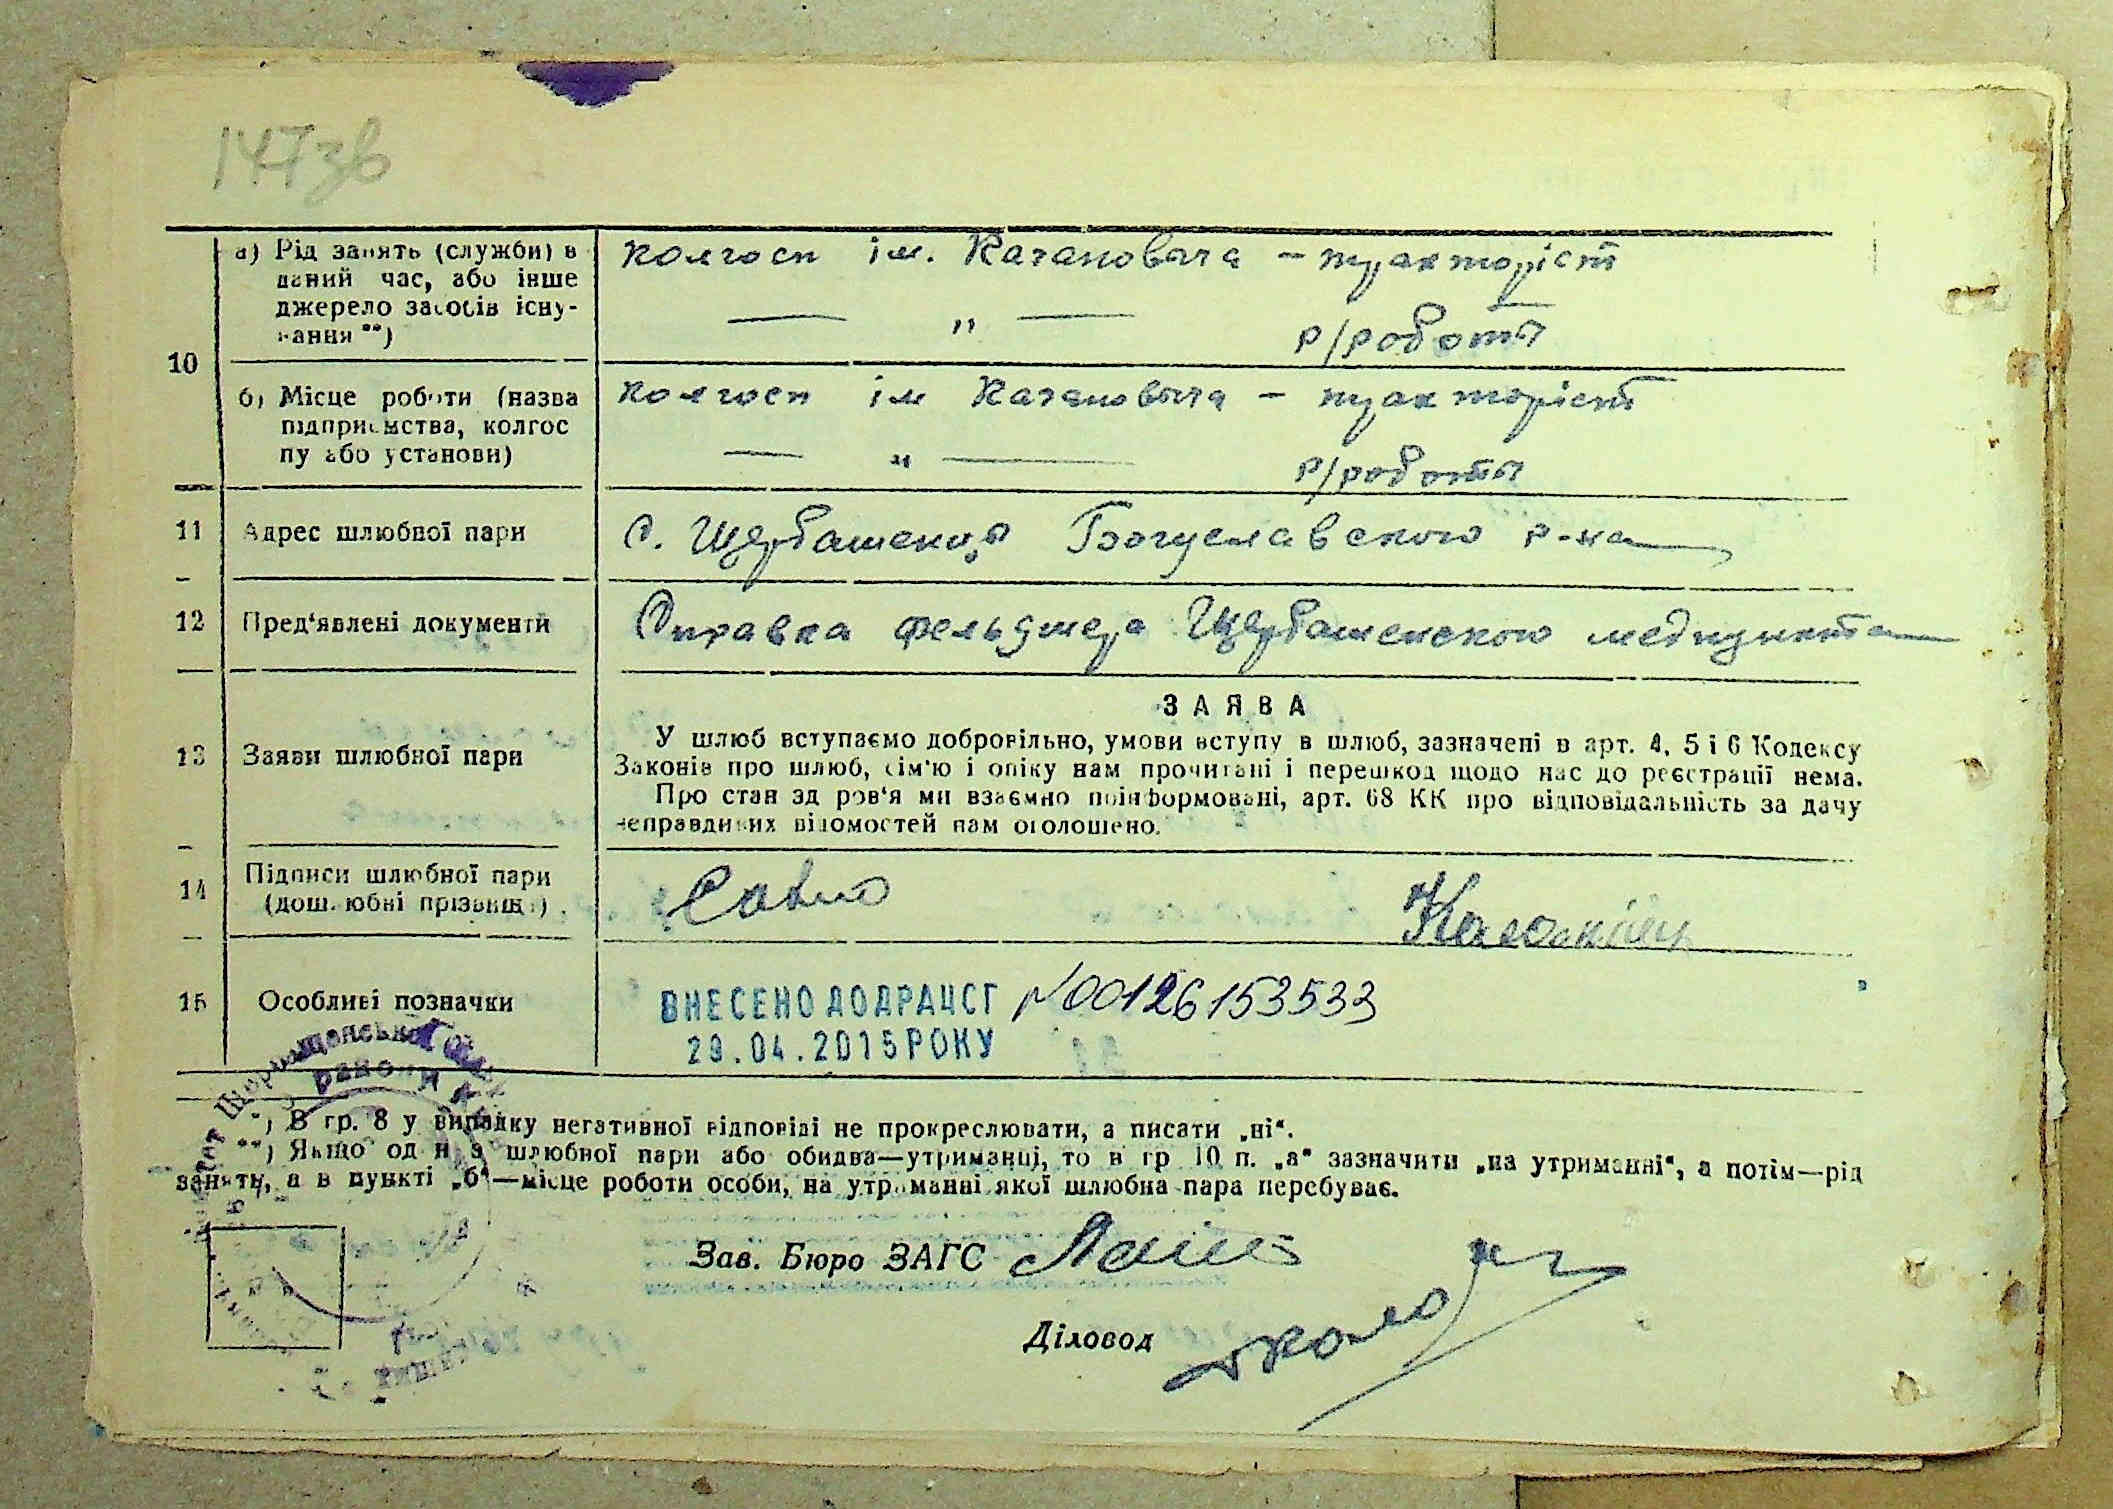 147зв
а) Рід занять (служби) в
даний час, або інше
джерело засобів існу-
вання **)
колгосп ім. Кагановыча - тракторіст
— „ — р/роботы
10
б) Місце роботи (назва
підприємства, колгос
пу або установи)
колгосп ім Кагановыча - тракторіст
— „ — р/роботы
11 Адрес шлюбної пари
с. Щербашенцы Богуславского р-на
12 Пред'явлені документи
Справка фельдшера Щербашенского медпункта
13 Заяви шлюбної пари
ЗАЯВА
У шлюб вступаємо добровільно, умови вступу в шлюб, зазначені в арт. 4, 5 і 6 Кодексу
Законів про шлюб, сім'ю і опіку нам прочитані і перешкод щодо нас до реєстрації нема.
Про стан здоров'я ми взаємно поінформовані, арт. 68 КК про відповідальність за дачу
неправдивих відомостей нам оголошено.
14 Підписи шлюбної пари
(дошлюбні прізвища)
15 Особливі позначки
ВНЕСЕНО ДО ДРАЦСГ №00126153533
29.04.2015 РОКУ
*) В гр. 8 у випадку негативної відповіді не прокреслювати, а писати „ні“.
**) Якщо один з шлюбної пари або обидва—утриманці, то в гр 10 п. „а“ зазначити „на утриманні“, а потім—рід
занять, а в пункті „б“—місце роботи особи, на утриманні якої шлюбна пара перебуває.
Зав. Бюро ЗАГС
Діловод